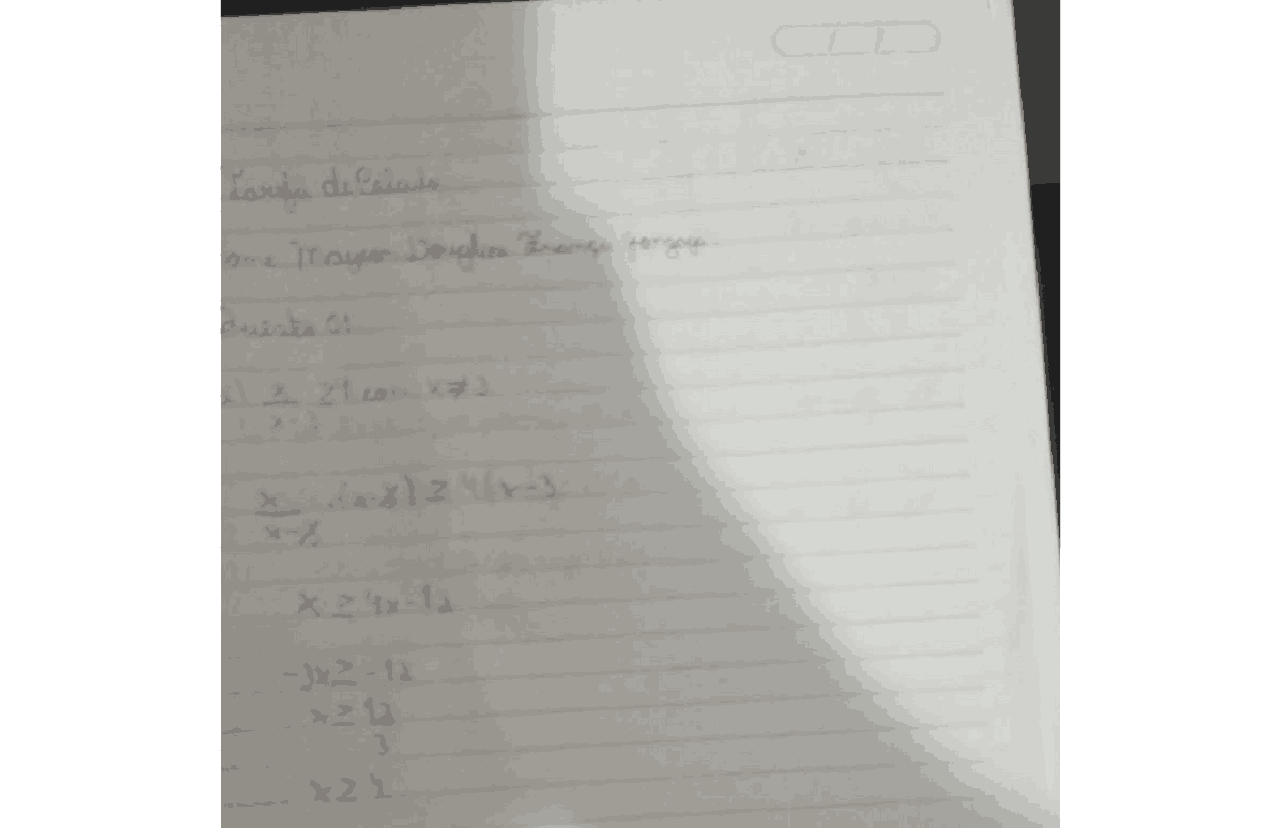 Tarefa de Cálculo
Mayor Douglas
Questão 01
x/x-3 ≥ 4 com x ≠ 3
x/x-3 . (x-3) ≥ 4(x-3
x ≥ 4x-12
-3x ≥ -12
x ≥ 12
3
x ≥ 4